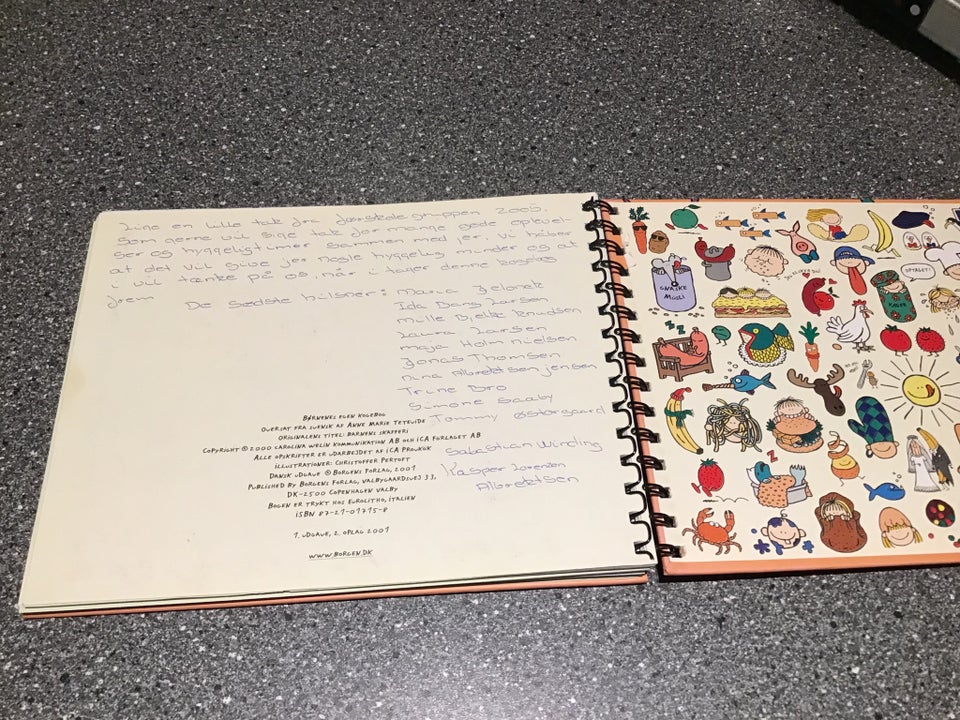 en Lille tak fra gruppen 2005.
Som gerne vil sige tak for mange gode oplevel-
ser og hyggelig timer sammen med jer, vi håber
at det vil give jer nogle hyggelig minder og at
i vil tænke på os når i tager denne bog
frem
De sødste hilsner: Maria Zelonek
Ida Bang Larsen
Mille Bjelke Knudsen
Laura Larsen
maja Holm Nielsen
Jonas Thomsen
nina Albrektsen Jensen
Trine Bro
Simone Saaby
Tommy Østergaard
Sebastian Winding
Kasper Lorenzen
Albrektsen
BØRNENES EGEN KOGEBOG
OVERSAT FRA SVENSK AF ANNE MARIE TETEVIDE
ORIGINALENS TITEL: BARNENS SKAFFERI
COPYRIGHT © 2000 CAROLINA WELIN KOMMUNIKATION AB OCH ICA FÖRLAGET AB
ALLE OPSKRIFTER ER UDARBEJDET AF ICA PROVKÖK
ILLUSTRATIONER: CHRISTOFFER PERTOFT
DANSK UDGAVE © BORGENS FORLAG, 2001
PUBLISHED BY BORGENS FORLAG, VALBYGAARDSVEJ 33,
DK-2500 COPENHAGEN VALBY
BOGEN ER TRYKT HOS EUROLITHO, ITALIEN
ISBN 87-21-01715-8
1. UDGAVE, 2. OPLAG 2001
WWW.BORGEN.DK
GNASKE
MÜSLI
OPTAGET!
KAGER